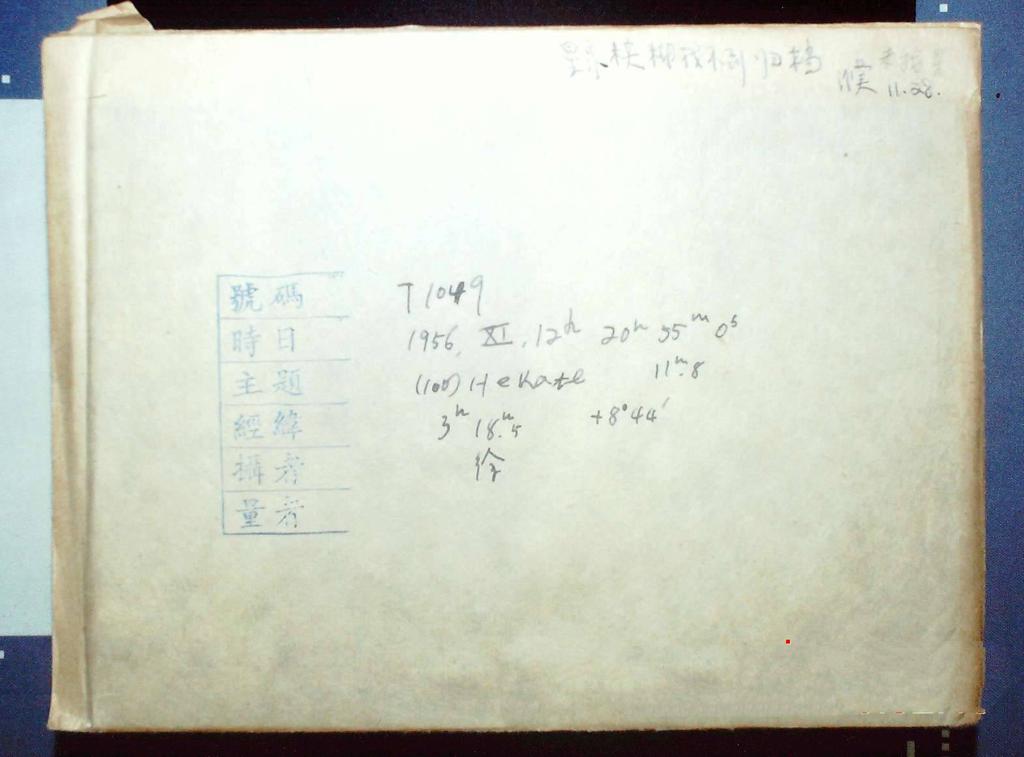 11.28.
號碼 T1049
時日 1956, XI, 12h 20h 55m 0s
主題 (100) Hekate 11m.8
經緯 3h 18m.5 +8°44′
攝者 徐
量者